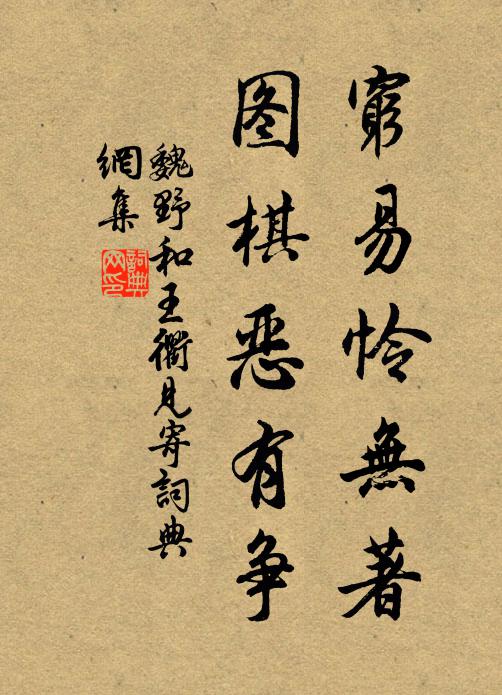 窮易怜無著
图棋恶有争
魏野和王衢見寄詞典
網集
詞典
网印